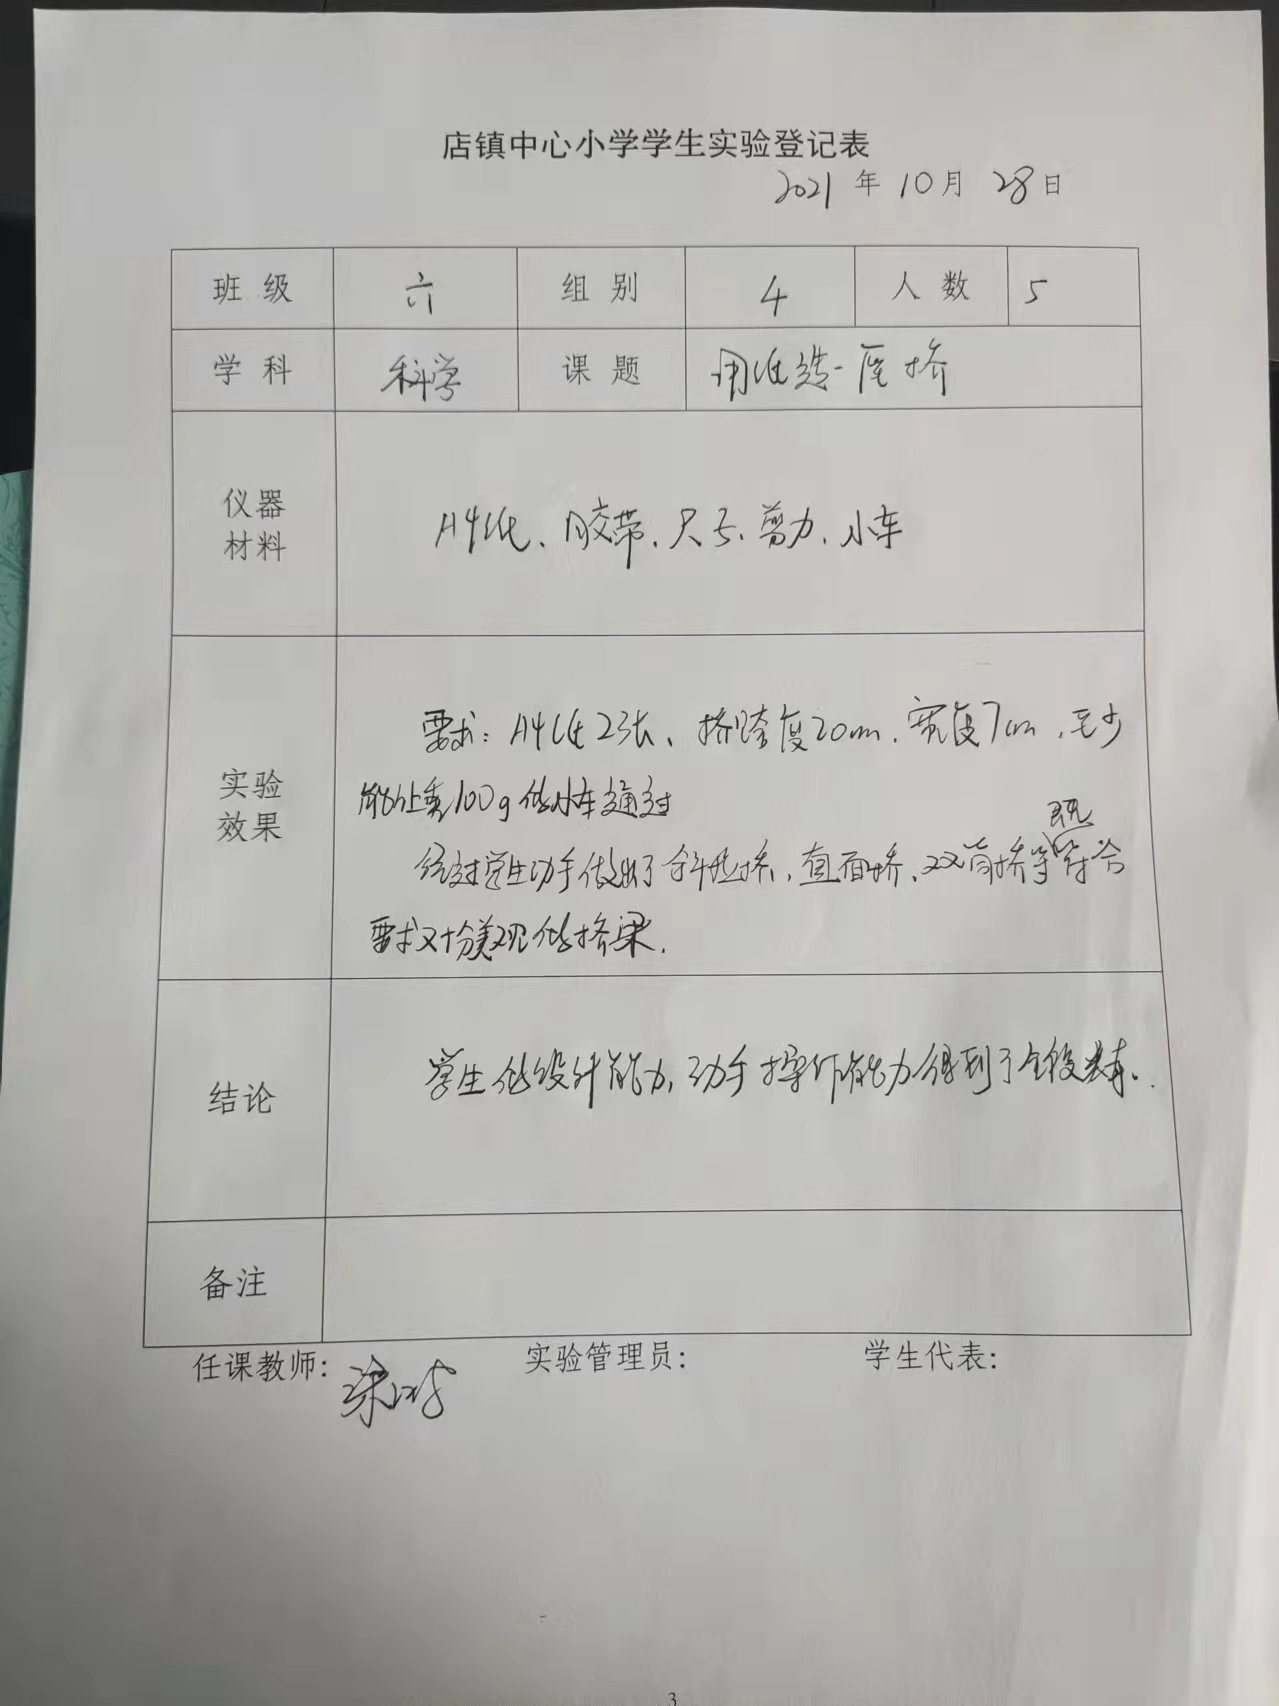 店镇中心小学学生实验登记表
2021 年 10 月 28 日
班 级 六 组 别 4 人 数 5
学 科 科学 课 题 用纸造一座桥
仪器
材料
A4纸、胶带、尺子、剪刀、小车
实验
效果
要求：A4纸2张、桥跨度20cm、宽度7cm，至少
能让重100g的小车通过
经过学生动手做出了斜拉桥、直面桥、双向桥等既符合
要求又十分美观的桥梁.
结论
学生的设计能力，动手操作能力得到了
备注
任课教师：
实验管理员：
学生代表：
3